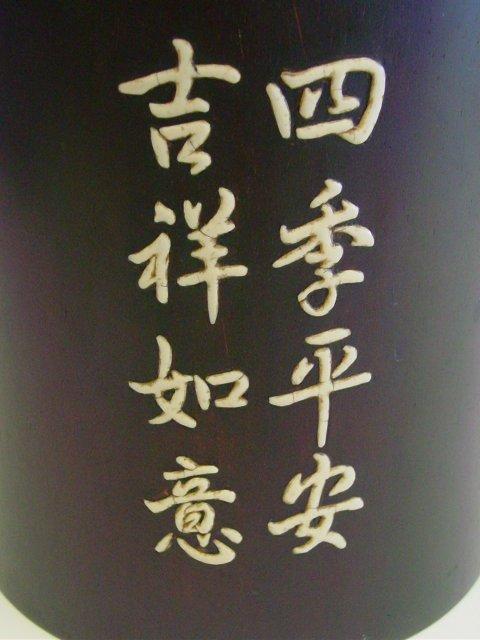 四季平安
吉祥如意